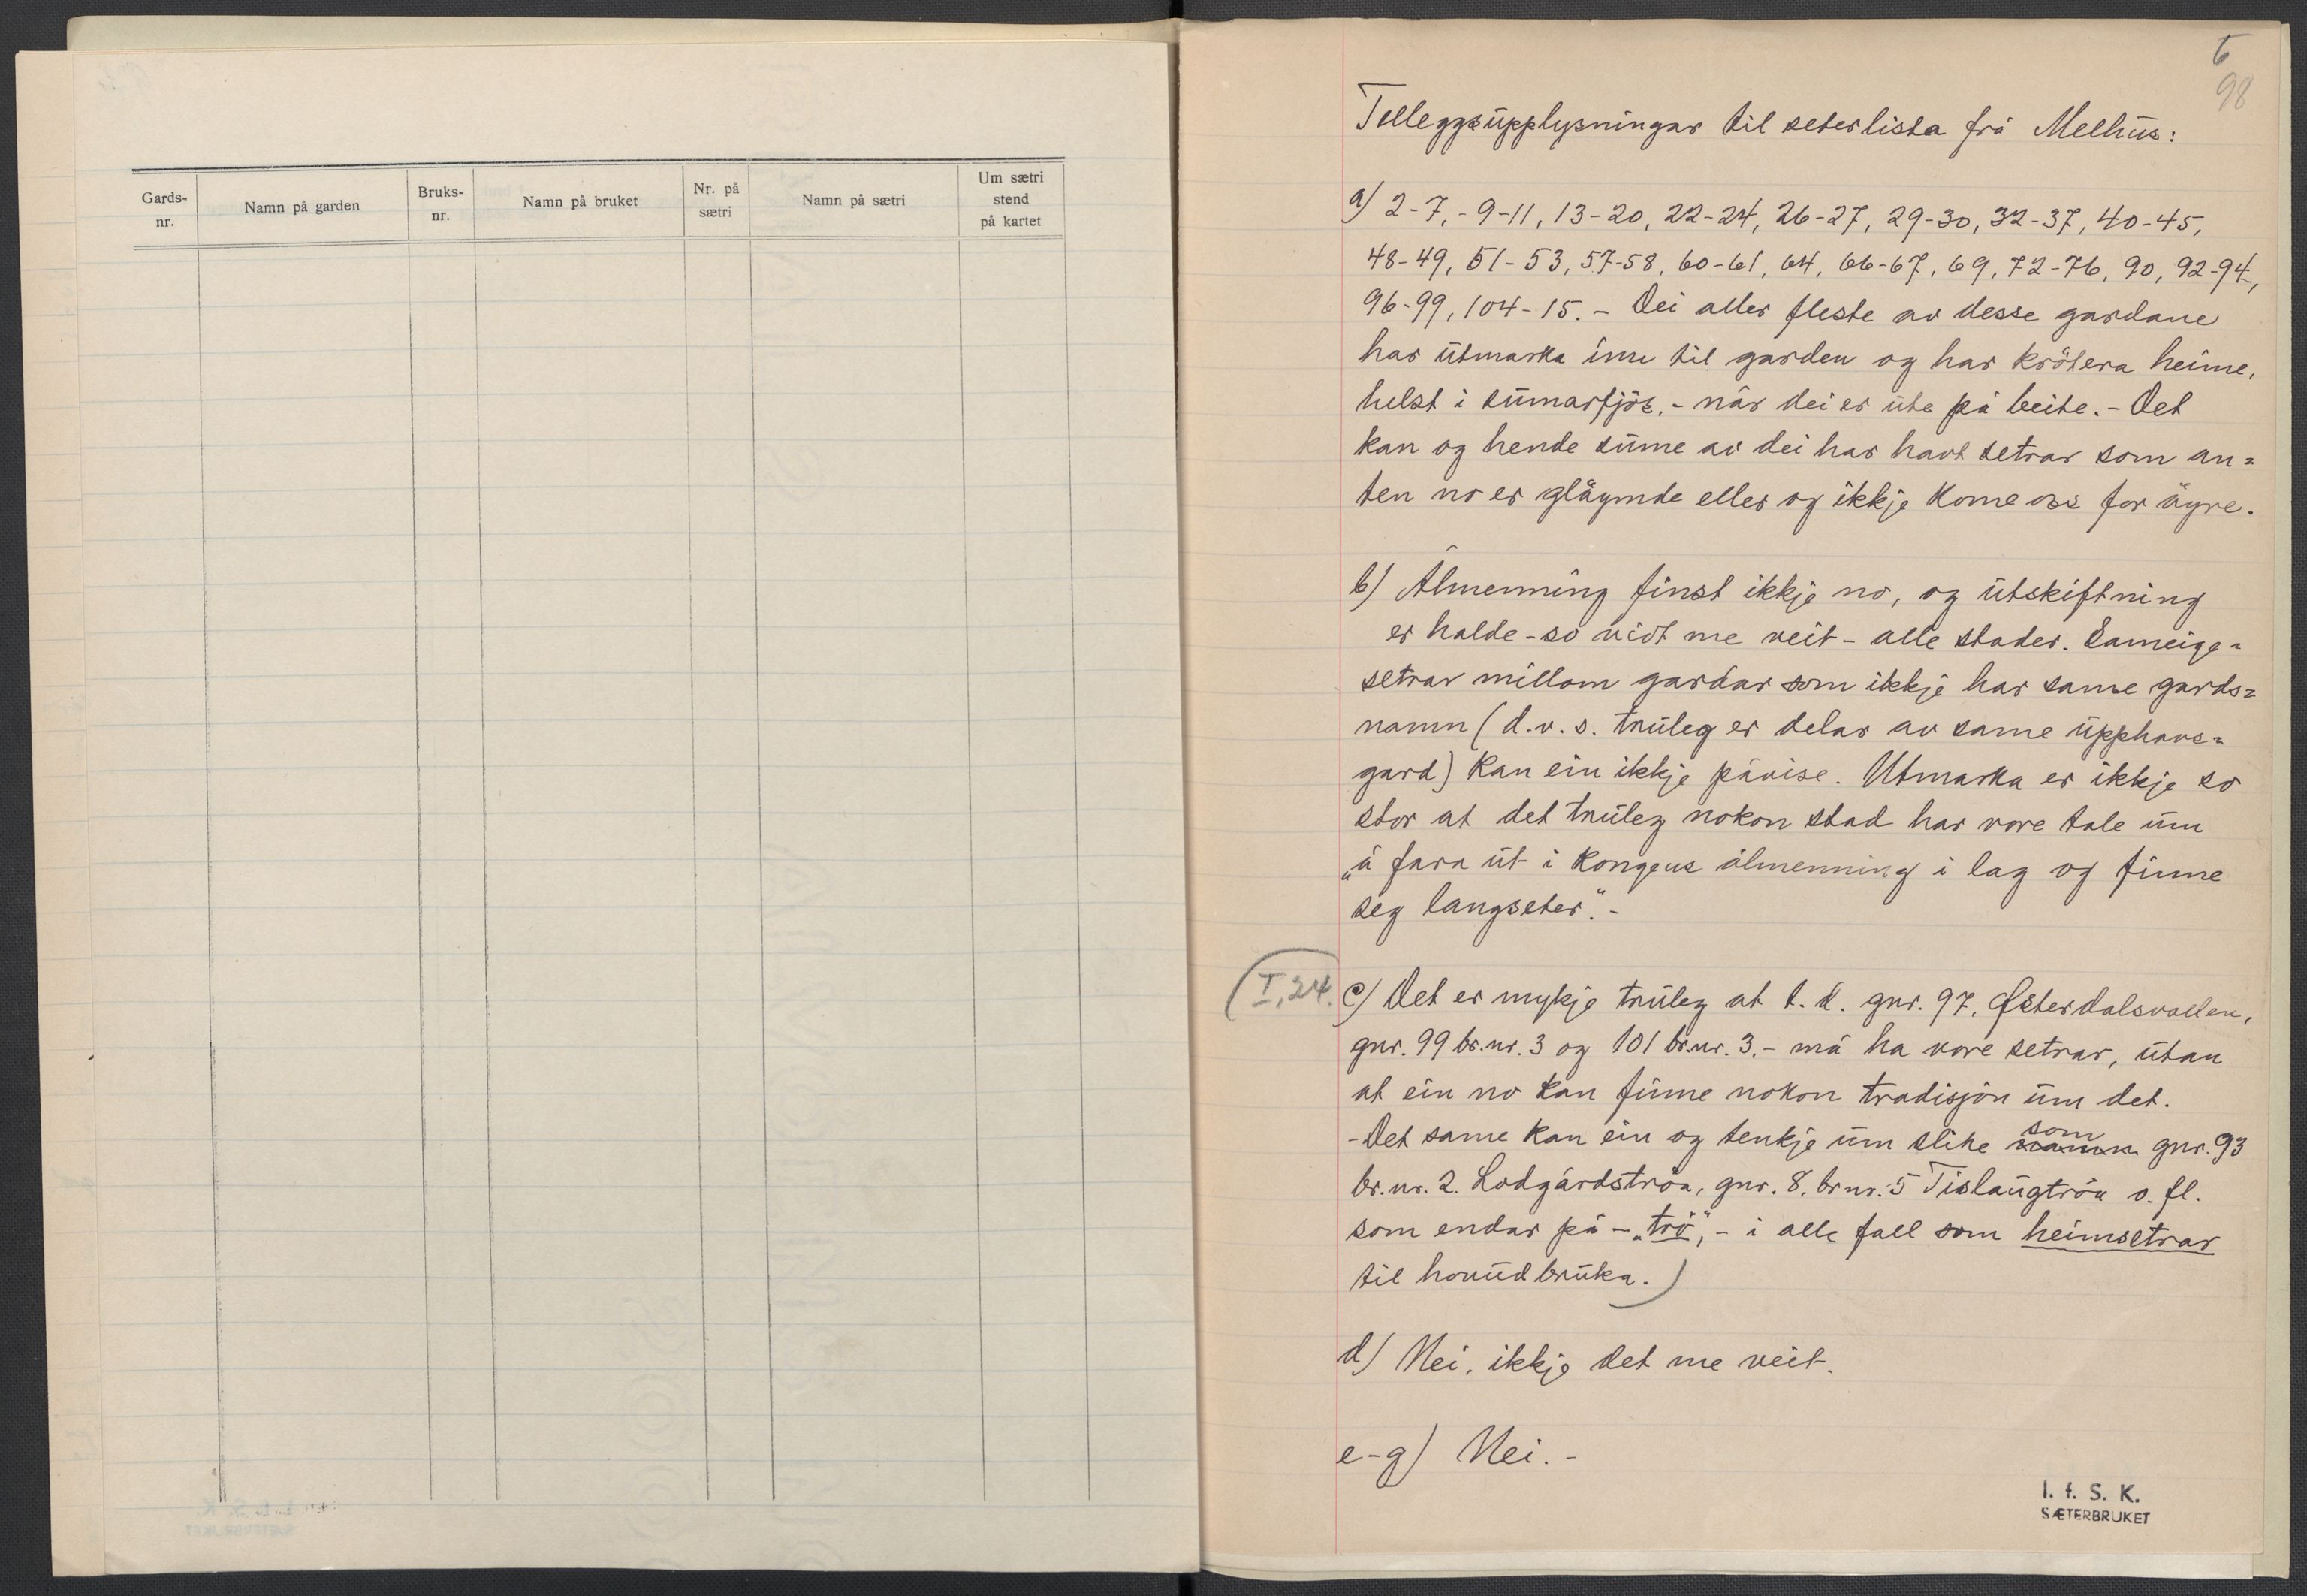 Gards-nr.
Namn på garden
Bruks-nr.
Namn på bruket
Nr. på sætri
Namn på sætri
Um sætri stend på kartet
6
98
Tilleggsupplysningar til seterlista frå Melhus:
a) 2-7,-9-11, 13-20, 22-24, 26-27, 29-30, 32-37, 40-45,
48-49, 51-53, 57-58, 60-61, 64, 66-67, 69, 72-76, 90, 92-94,
96-99, 104-15. - Dei aller fleste av desse gardane
har utmarka inn til garden og har krøtera heime,
helst i sumarfjös, - når dei er ute på beite. - Det
kan og hende sume av dei har havt setrar som an=
ten no er gløymde eller og ikkje kome oss for øyre.
b) Ålmenning finst ikkje no, og utskiftning
er halde - so vidt me veit - alle stader. Sameige=
setrar millom gardar som ikkje har same gards=
namn (d.v.s. truleg er delar av same upphavs=
gard) kan ein ikkje påvise. Utmarka er ikkje so
stor at det truleg nokon stad har vore tale um
„å fara ut i Kongens ålmenning i lag og finne
seg langseter". -
(I, 24.
c) Det er mykje truleg at t. d. gnr. 97, Østerdalsvollen,
gnr. 99 br.nr. 3 og 101 br.nr. 3, - må ha vore setrar, utan
at ein no kan finne nokon tradisjon um det.
- Det same kan ein og tenkje um slike namn som gnr. 93
br.nr. 2. Lodgårdströa, gnr. 8, br.nr. 5 Tislaugtröa o. fl.
som endar på - „trö", - i alle fall som heimsetrar
til hovudbruka.)
d) Nei, ikkje det me veit.
e-g) Nei. -
I. f. S. K.
SÆTERBRUKET